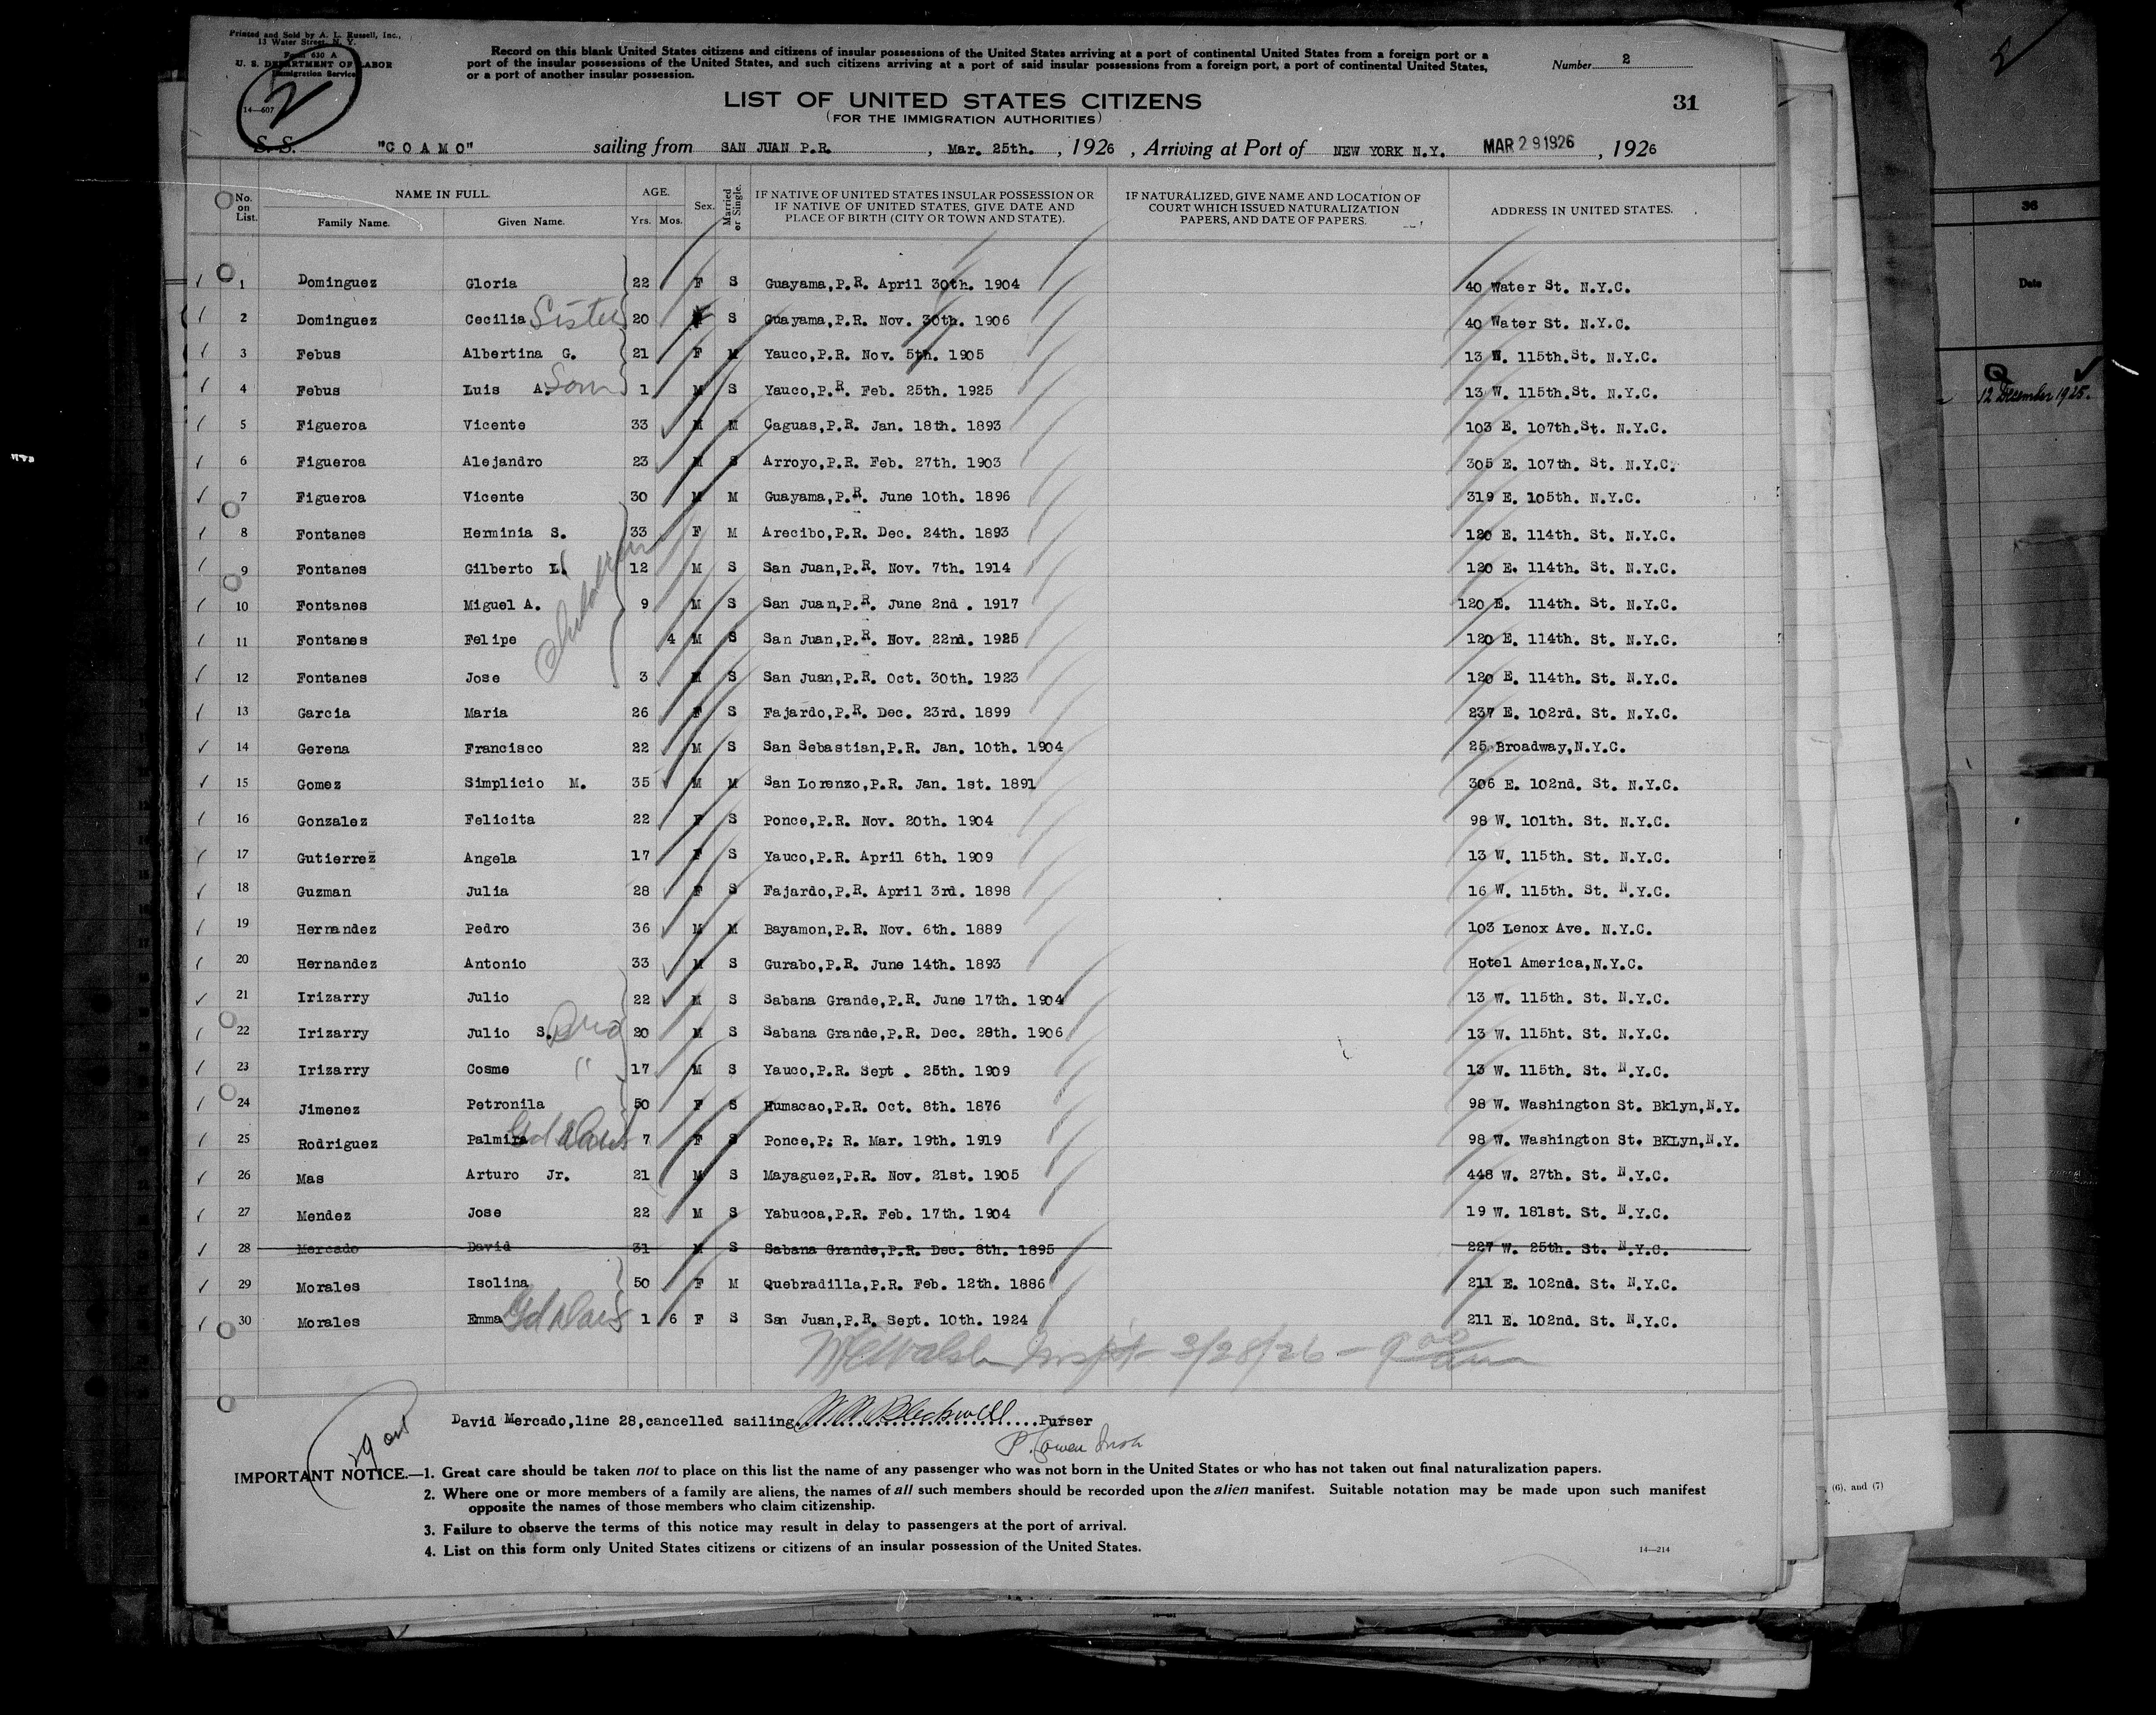 Printed and Sold by A. L. Russell, Inc.,
13 Water Street, N. Y.
Form 630 A
U. S. DEPARTMENT OF LABOR
Immigration Service
14—607
2
Record on this blank United States citizens and citizens of insular possessions of the United States arriving at a port of continental United States from a foreign port or a
port of the insular possessions of the United States, and such citizens arriving at a port of said insular possessions from a foreign port, a port of continental United States,
or a port of another insular possession.
Number 2
LIST OF UNITED STATES CITIZENS
(FOR THE IMMIGRATION AUTHORITIES)
31
S. S. "COAMO" sailing from SAN JUAN P.R. , Mar. 25th. , 1926 , Arriving at Port of NEW YORK N.Y. MAR 29 1926 , 1926
No. on List. NAME IN FULL. Family Name. Given Name. AGE. Yrs. Mos. Sex. Married or Single. IF NATIVE OF UNITED STATES INSULAR POSSESSION OR IF NATIVE OF UNITED STATES, GIVE DATE AND PLACE OF BIRTH (CITY OR TOWN AND STATE). IF NATURALIZED, GIVE NAME AND LOCATION OF COURT WHICH ISSUED NATURALIZATION PAPERS, AND DATE OF PAPERS. ADDRESS IN UNITED STATES.
1 Dominguez Gloria 22 F S Guayama,P.R. April 30th. 1904 40 Water St. N.Y.C.
2 Dominguez Cecilia Sister 20 S Guayama,P.R. Nov. 30th. 1906 40 Water St. N.Y.C.
3 Febus Albertina G. 21 F M Yauco,P.R. Nov. 5th. 1905 13 W. 115th.St. N.Y.C.
4 Febus Luis A. Son 1 M S Yauco,P.R. Feb. 25th. 1925 13 W. 115th.St. N.Y.C.
5 Figueroa Vicente 33 M M Caguas,P.R. Jan. 18th. 1893 103 E. 107th.St. N.Y.C.
6 Figueroa Alejandro 23 M S Arroyo,P.R. Feb. 27th. 1903 305 E. 107th. St. N.Y.C.
7 Figueroa Vicente 30 M M Guayama,P.R. June 10th. 1896 319 E. 105th. N.Y.C.
8 Fontanes Herminia S. 33 F M Arecibo,P.R. Dec. 24th. 1893 120 E. 114th. St. N.Y.C.
9 Fontanes Gilberto L. 12 M S San Juan,P.R. Nov. 7th. 1914 120 E. 114th. St. N.Y.C.
10 Fontanes Miguel A. 9 M S San Juan,P.R. June 2nd . 1917 120 E. 114th. St. N.Y.C.
11 Fontanes Felipe 4 M S San Juan,P.R. Nov. 22nd. 1925 120 E. 114th. St. N.Y.C.
12 Fontanes Jose 3 M S San Juan,P.R. Oct. 30th. 1923 120 E. 114th. St. N.Y.C.
13 Garcia Maria 26 F S Fajardo,P.R. Dec. 23rd. 1899 237 E. 102rd. St. N.Y.C.
14 Gerena Francisco 22 M S San Sebastian,P.R. Jan. 10th. 1904 25 Broadway,N.Y.C.
15 Gomez Simplicio M. 35 M M San Lorenzo,P.R. Jan. 1st. 1891 306 E. 102nd. St. N.Y.C.
16 Gonzalez Felicita 22 F S Ponce,P.R. Nov. 20th. 1904 98 W. 101th. St. N.Y.C.
17 Gutierrez Angela 17 F S Yauco,P.R. April 6th. 1909 13 W. 115th. St. N.Y.C.
18 Guzman Julia 28 F S Fajardo,P.R. April 3rd. 1898 16 W. 115th. St. N.Y.C.
19 Hernandez Pedro 36 M M Bayamon,P.R. Nov. 6th. 1889 103 Lenox Ave. N.Y.C.
20 Hernandez Antonio 33 M S Gurabo,P.R. June 14th. 1893 Hotel America,N.Y.C.
21 Irizarry Julio 22 M S Sabana Grande,P.R. June 17th. 1904 13 W. 115th. St. N.Y.C.
22 Irizarry Julio S. Bro 20 M S Sabana Grande,P.R. Dec. 28th. 1906 13 W. 115ht. St. N.Y.C.
23 Irizarry Cosme " 17 M S Yauco,P.R. Sept . 25th. 1909 13 W. 115th. St. N.Y.C.
24 Jimenez Petronila 50 F S Humacao,P.R. Oct. 8th. 1876 98 W. Washington St. Bklyn,N.Y.
25 Rodriguez Palmira Gd Daus 7 F S Ponce,P. R. Mar. 19th. 1919 98 W. Washington St. BKLyn,N.Y.
26 Mas Arturo Jr. 21 M S Mayaguez,P.R. Nov. 21st. 1905 448 W. 27th. St. N.Y.C.
27 Mendez Jose 22 M S Yabucoa,P.R. Feb. 17th. 1904 19 W. 181st. St. N.Y.C.
28 Mercado David 31 M S Sabana Grande,P.R. Dec. 8th. 1895 227 W. 25th. St. N.Y.C.
29 Morales Isolina 50 F M Quebradilla,P.R. Feb. 12th. 1886 211 E. 102nd. St. N.Y.C.
30 Morales Emma Gd Daus 1 6 F S San Juan,P.R. Sept. 10th. 1924 211 E. 102nd. St. N.Y.C.
Children
Walsh Inspt 3/28/26 — 9 00 am
David Mercado,line 28,cancelled sailing. Blackwell Purser
29
IMPORTANT NOTICE.—1. Great care should be taken not to place on this list the name of any passenger who was not born in the United States or who has not taken out final naturalization papers.
2. Where one or more members of a family are aliens, the names of all such members should be recorded upon the alien manifest. Suitable notation may be made upon such manifest
opposite the names of those members who claim citizenship.
3. Failure to observe the terms of this notice may result in delay to passengers at the port of arrival.
4. List on this form only United States citizens or citizens of an insular possession of the United States.
14—214
36
Date
12 December 1925.
(6), and (7)